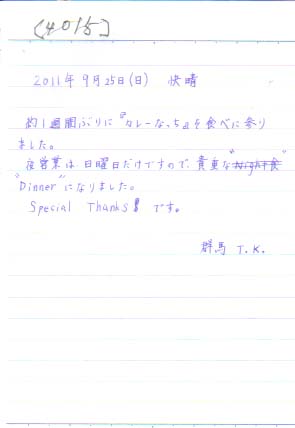 (4015)
2011年9月25日(日) 快晴
約1週間ぶりに『カレーなっち』を食べに参り
ました。
夜営業は日曜日だけですので、貴重な"
"Dinner"になりました。
Special Thanks!! です。
群馬 T.K.